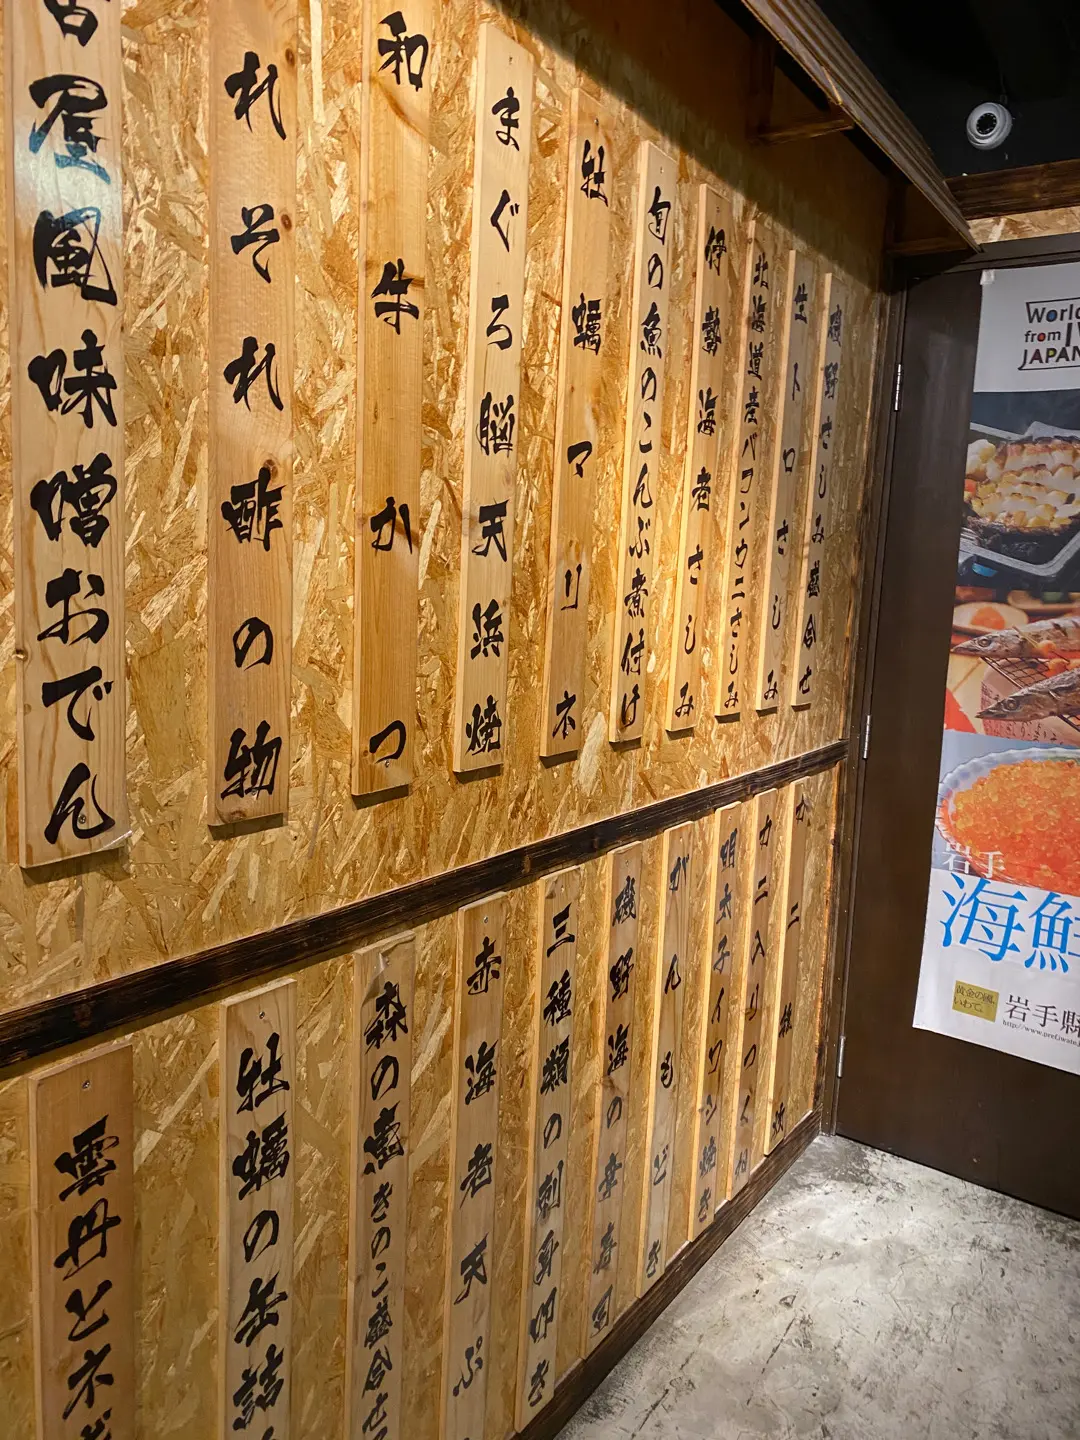 磯野さしみ盛合せ
生トロさしみ
北海道産バフンウニさしみ
伊勢海老さしみ
旬の魚のこんぶ煮付け
牡蠣マリネ
まぐろ脳天浜焼
和牛かつ
れそれ酢の物
古屋風味噌おでん
カニ入りつくね
明太子イワシ焼き
がんもどき
磯野海の幸寿司
三種類の刺身叩き
赤海老天ぷ
森の恵きのこ盛合せ
牡蠣の缶詰
雲丹とネギ
World
from
JAPAN
岩手
海鮮
黄金の國、
いわて。
岩手県